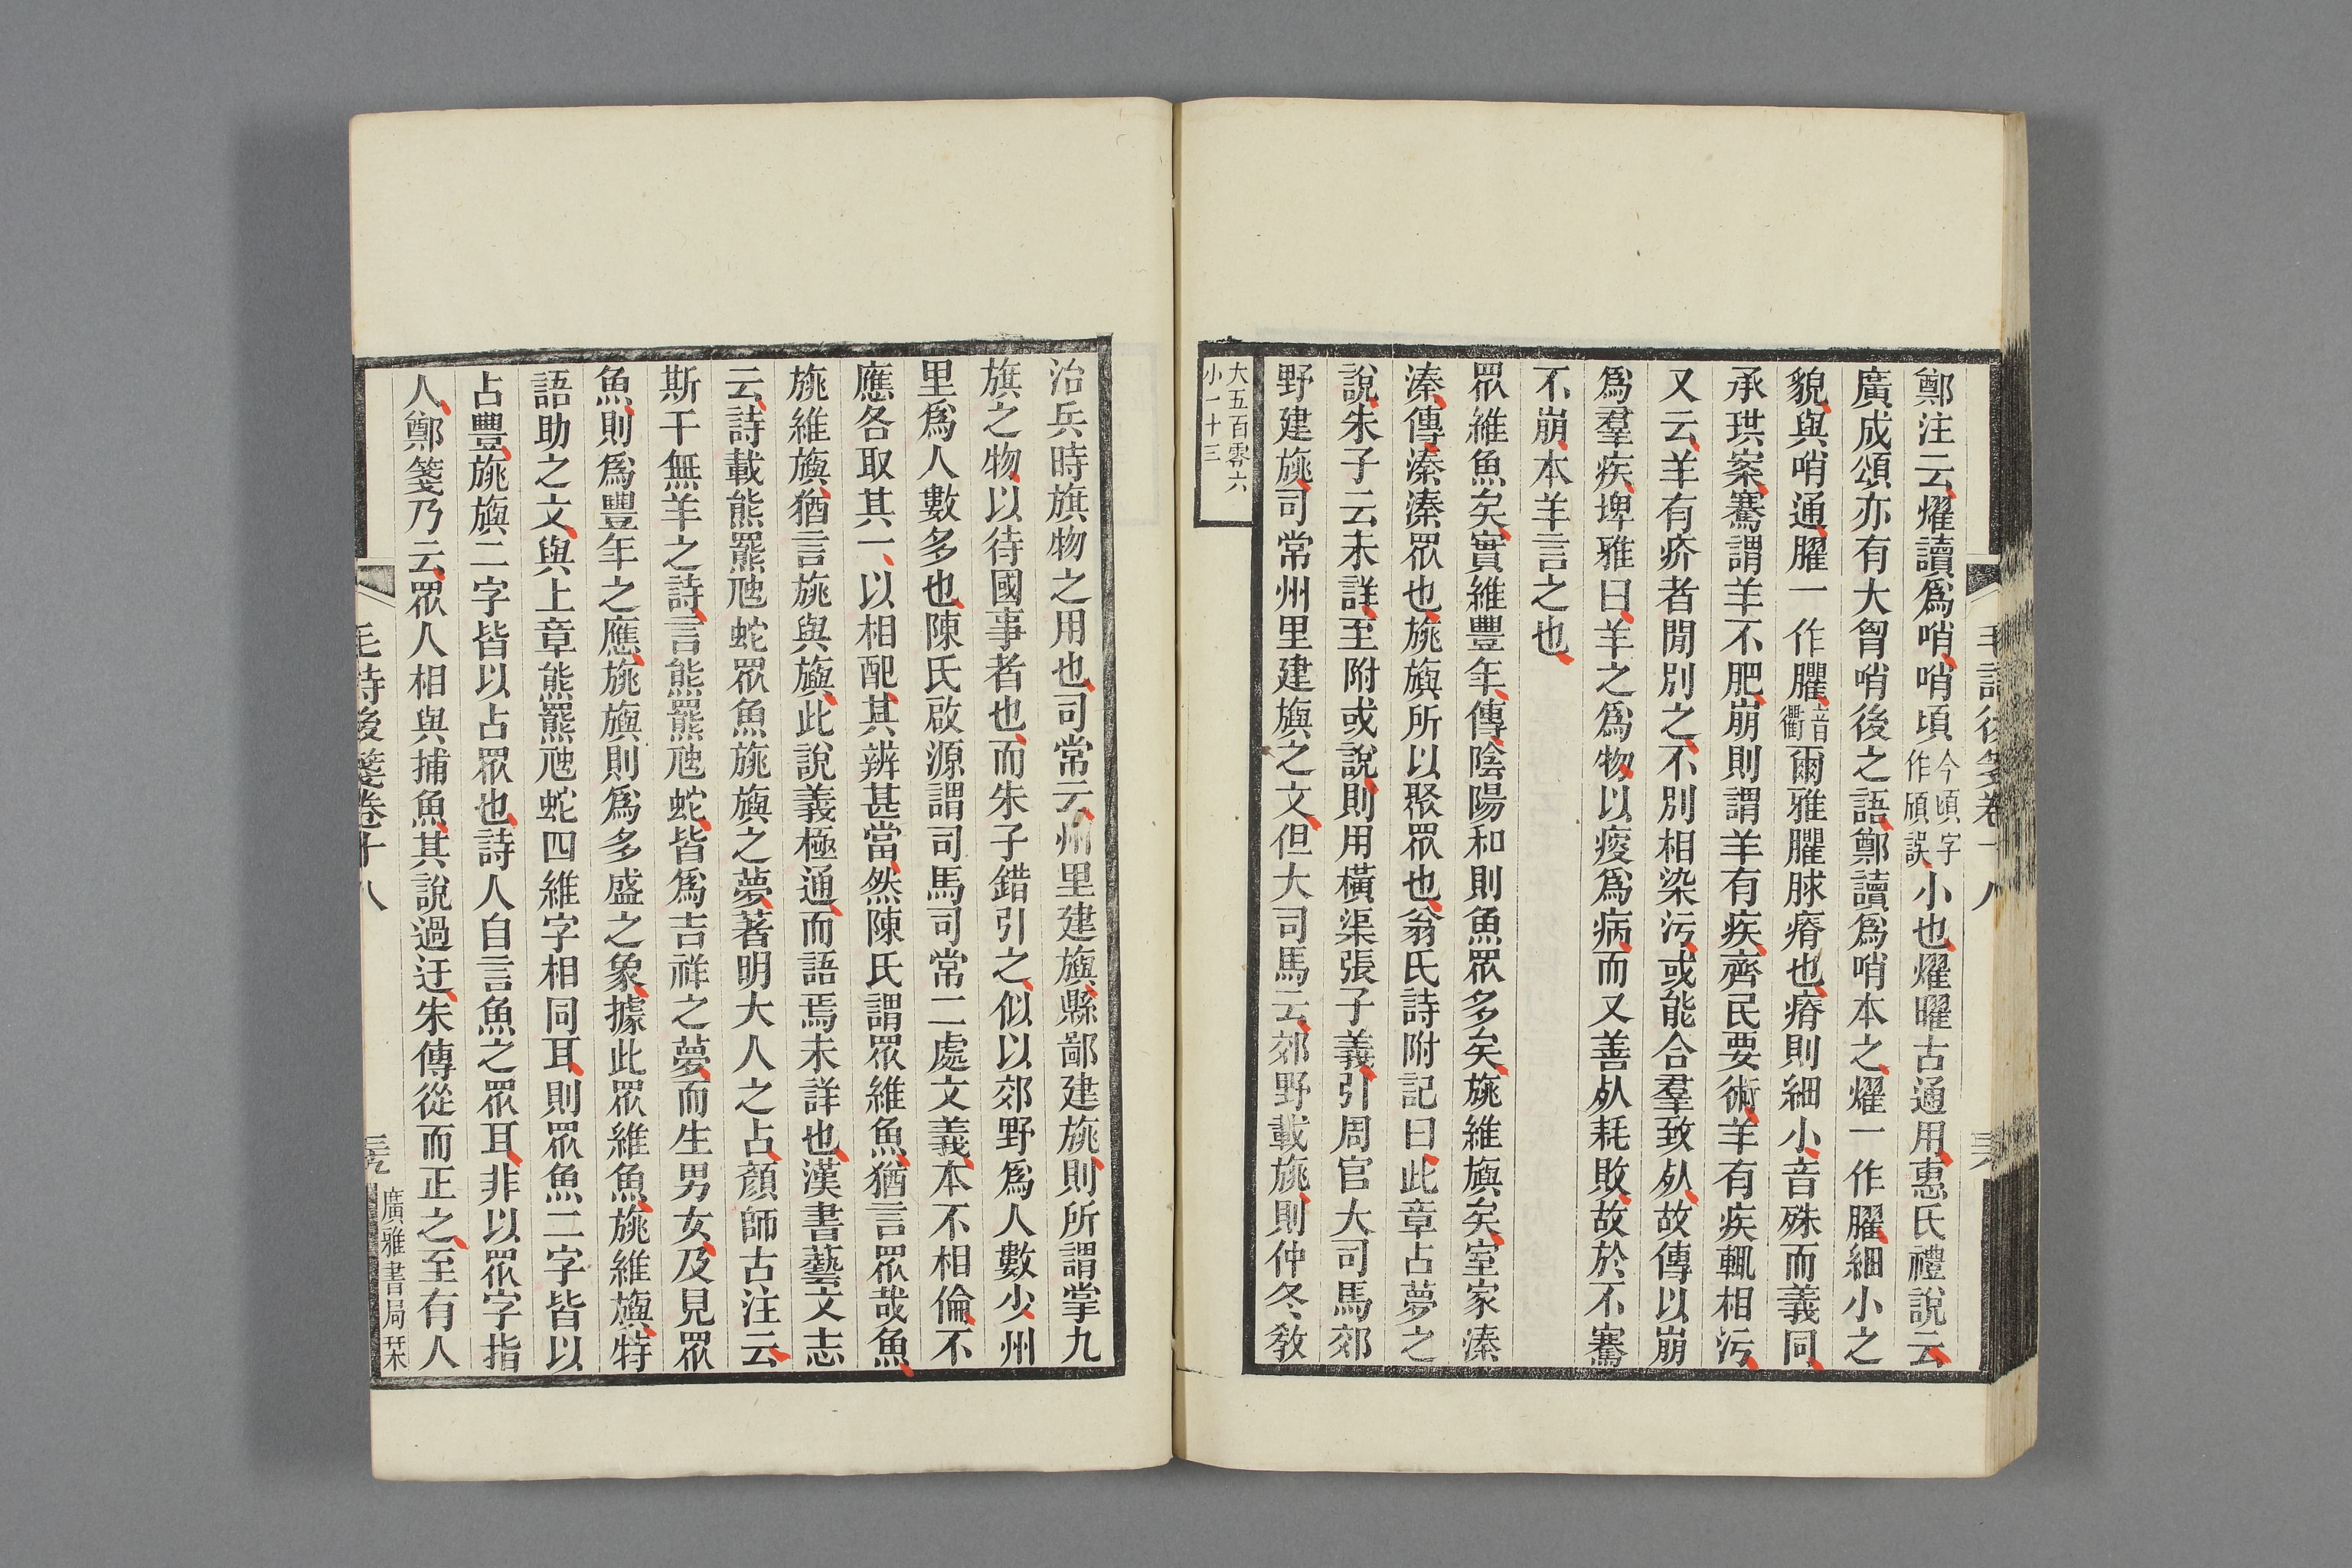 鄭注云燿讀爲哨哨頃今頃字作頎誤小也燿曜古通用惠氏禮說云
廣成頌亦有大胷哨後之語鄭讀爲哨本之燿一作臞細小之
貌與哨通臞一作臞音衢爾雅臞脙瘠也瘠則細小音殊而義同
承珙案騫謂羊不肥崩則謂羊有疾齊民要術羊有疾輒相污
又云羊有疥者閒別之不別相染污或能合羣致死故傳以崩
爲羣疾埤雅曰羊之爲物以瘦爲病而又善死耗敗故於不騫
不崩本羊言之也
眾維魚矣實維豐年傳陰陽和則魚眾多矣旐維旟矣室家溱
溱傳溱溱眾也旐旟所以聚眾也翁氏詩附記曰此章占夢之
說朱子云未詳至附或說則用橫渠張子義引周官大司馬郊
野建旐司常州里建旟之文但大司馬云郊野載旐則仲冬敎
大五百零六
小一十三
毛詩後箋卷十八
治兵時旗物之用也司常云州里建旟縣鄙建旐則所謂掌九
旗之物以待國事者也而朱子錯引之似以郊野爲人數少州
里爲人數多也陳氏啟源謂司馬司常二處文義本不相倫不
應各取其一以相配其辨甚當然陳氏謂眾維魚猶言眾哉魚
旐維旟猶言旐與旟此說義極通而語焉未詳也漢書藝文志
云詩載熊羆虺蛇眾魚旐旟之夢著明大人之占顏師古注云
斯干無羊之詩言熊羆虺蛇皆爲吉祥之夢而生男女及見眾
魚則爲豐年之應旐旟則爲多盛之象據此眾維魚旐維旟特
語助之文與上章熊羆虺蛇四維字相同耳則眾魚二字皆以
占豐旐旟二字皆以占眾也詩人自言魚之眾耳非以眾字指
人鄭箋乃云眾人相與捕魚其說過迂朱傳從而正之至有人
毛詩後箋卷十八
三九
廣雅書局栞